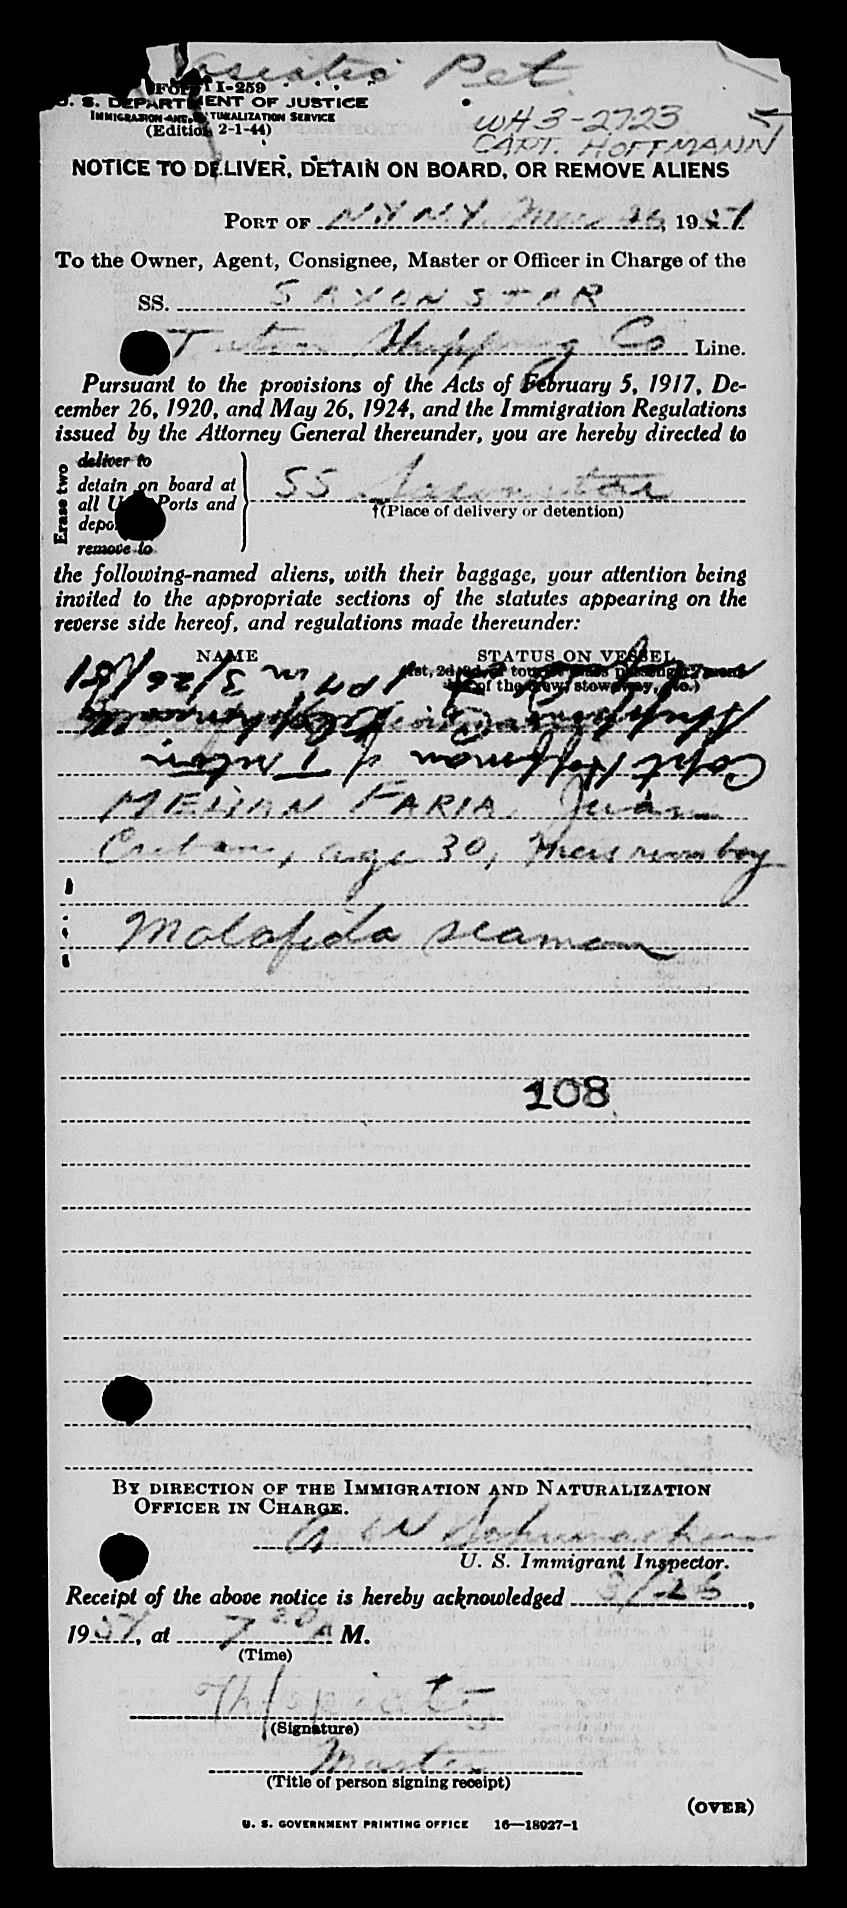 Asiatic Pet
Form I-259
U. S. DEPARTMENT OF JUSTICE
IMMIGRATION AND NATURALIZATION SERVICE
(Edition 2-1-44)
WH3-2723
CAPT. HOFFMANN
NOTICE TO DELIVER, DETAIN ON BOARD, OR REMOVE ALIENS
PORT OF N.Y. N.Y. Mar 26, 1951
To the Owner, Agent, Consignee, Master or Officer in Charge of the
SS. SAXON STAR
Triton Shipping Co Line.
Pursuant to the provisions of the Acts of February 5, 1917, De-
cember 26, 1920, and May 26, 1924, and the Immigration Regulations
issued by the Attorney General thereunder, you are hereby directed to
Erase two
deliver to
detain on board at
all U. Ports and
depo
remove to
SS Saxon Star
†(Place of delivery or detention)
the following-named aliens, with their baggage, your attention being
invited to the appropriate sections of the statutes appearing on the
reverse side hereof, and regulations made thereunder:
NAME STATUS ON VESSEL
Capt Hoffman of Triton
Shipping Co
1 PM in 3/26/51
MEIJAN FARIA, Juan
Cuban, age 30, Messroomboy
Malafida seaman
108
BY DIRECTION OF THE IMMIGRATION AND NATURALIZATION
OFFICER IN CHARGE.
U. S. Immigrant Inspector.
Receipt of the above notice is hereby acknowledged 3/26,
1951, at 7 30 A M.
(Time)
(Signature)
Master
(Title of person signing receipt)
(OVER)
U. S. GOVERNMENT PRINTING OFFICE 16—18927-1